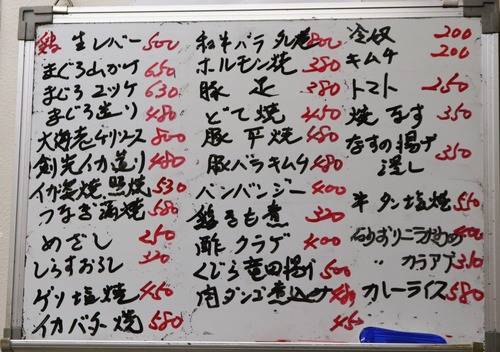 鶏 生レバー 500
まぐろ山かけ 650
まぐろユッケ 630
まぐろ造り 480
大海老チリソース 800
剣光イカ造り 480
イカ姿焼 照焼 530
つなぎ酒焼 580
めざし 250
しらすおろし 320
ゲソ塩焼 450
イカバター焼 580
和牛バラタレ焼 800
ホルモン焼 380
豚足 380
どて焼 450
豚平焼 480
豚バラキムチ 480
バンバンジー 400
鶏きも煮 320
酢クラゲ 400
くじら竜田揚げ 500
肉ダンゴ煮込
450
冷奴 200
キムチ 200
トマト 250
焼なす 350
なすの揚げ
浸し 350
牛タン塩焼 550
砂ずりニンニク炒め 400
〃 カラアゲ 350
カレーライス 580